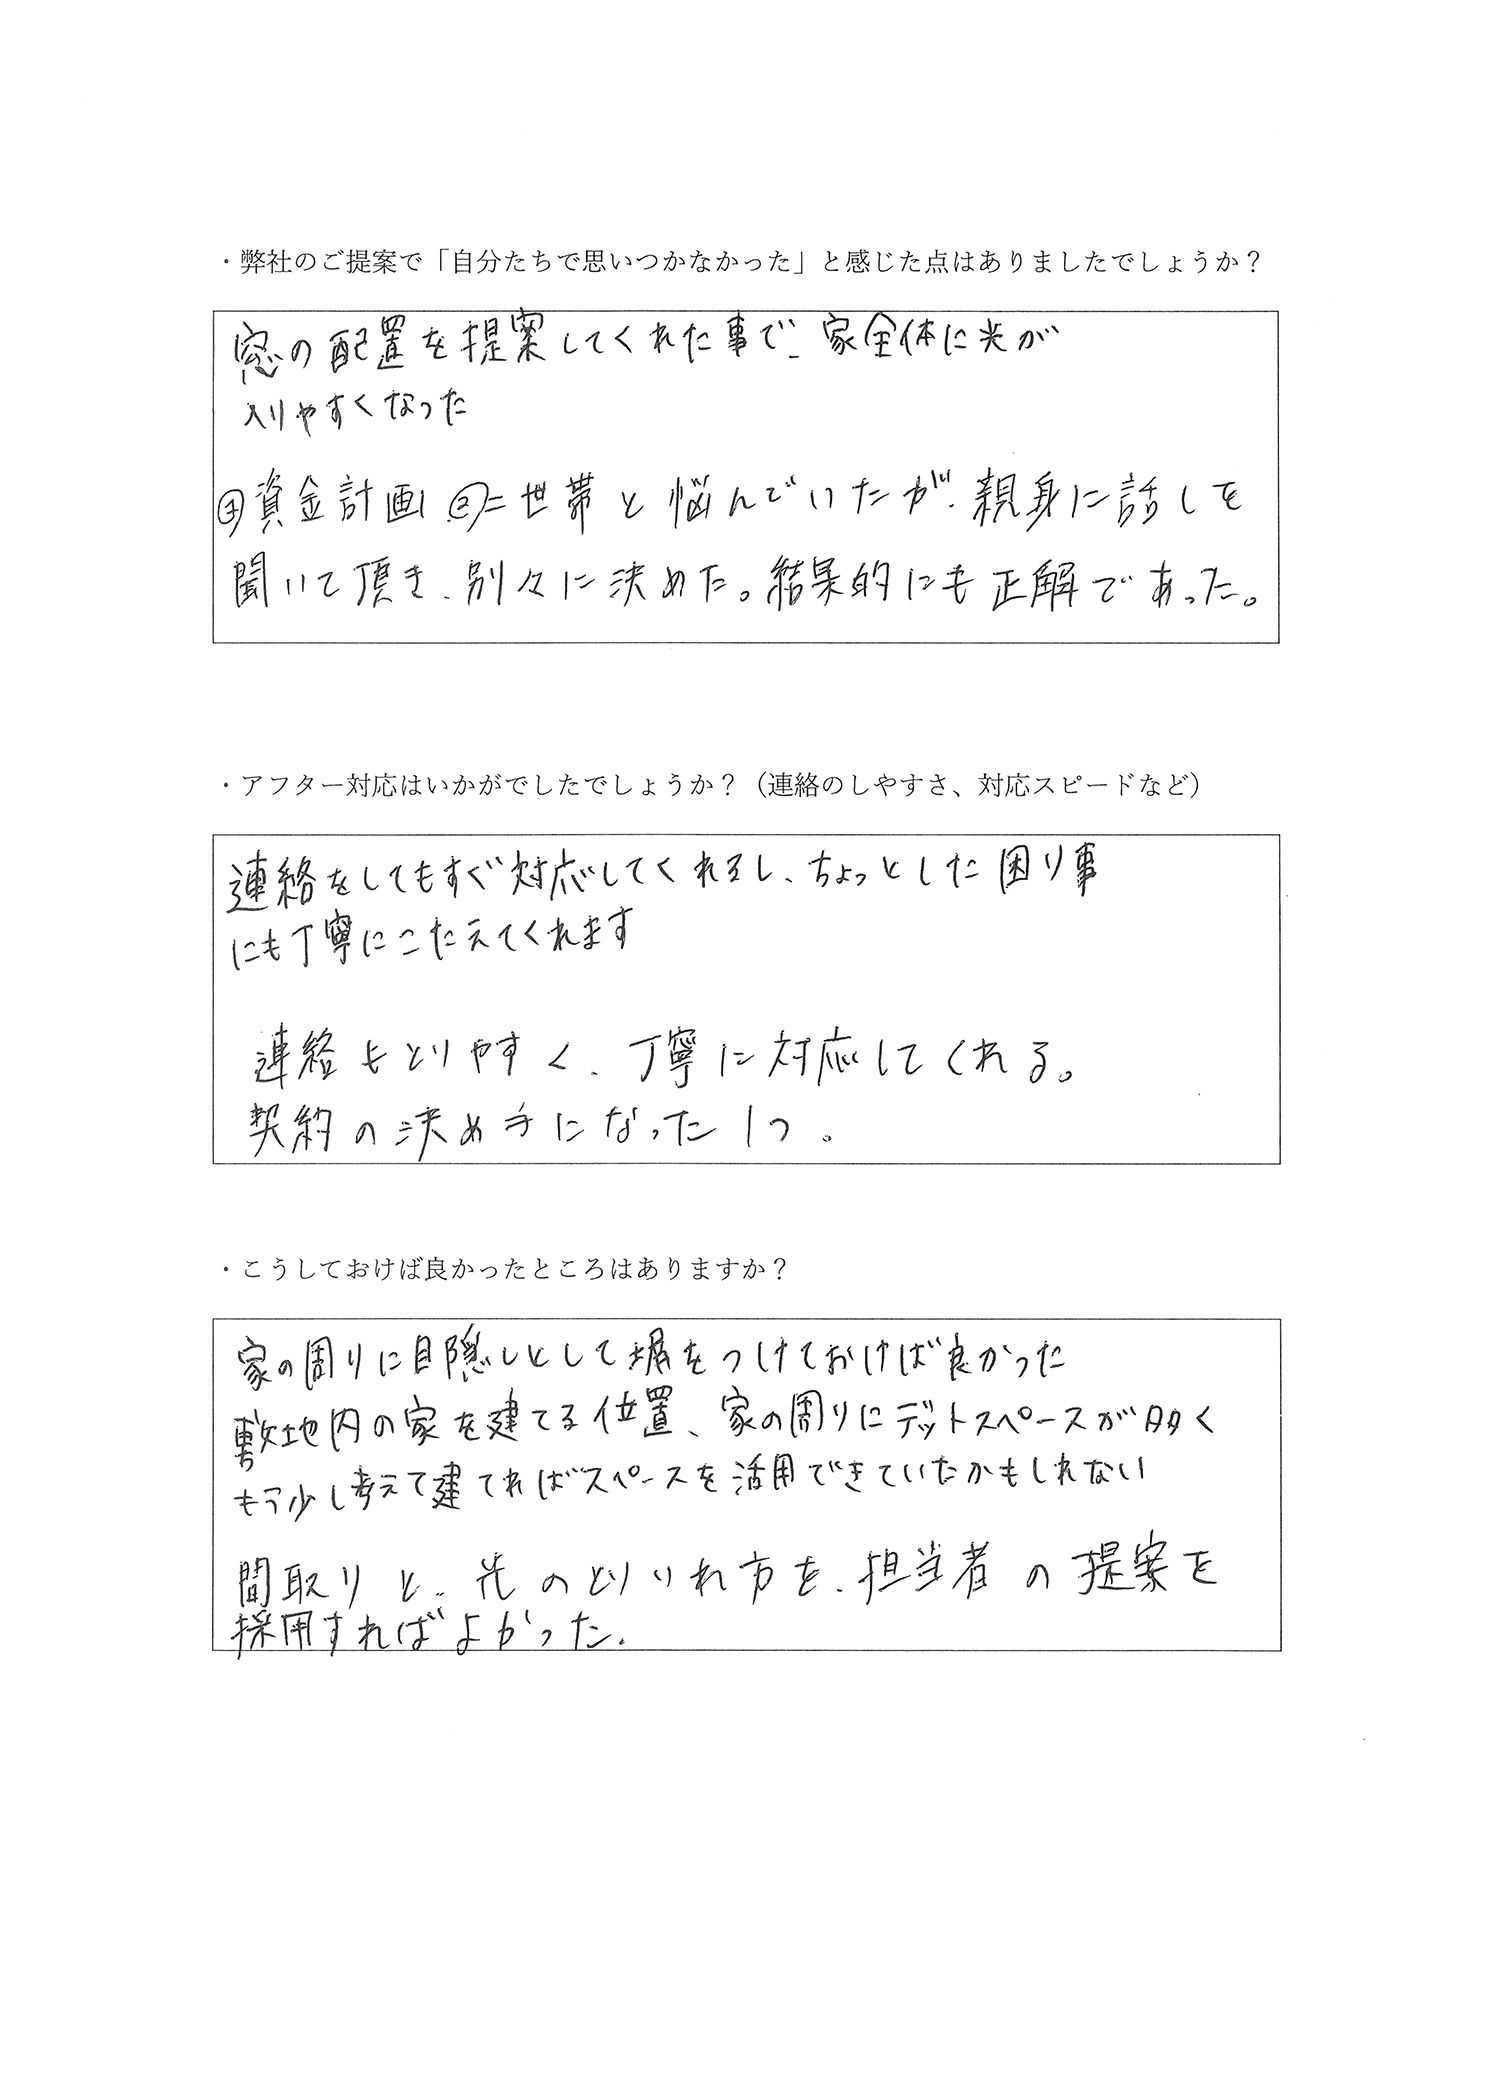 ・弊社のご提案で「自分たちで思いつかなかった」と感じた点はありましたでしょうか？
窓の配置を提案してくれた事で、家全体に光が
入りやすくなった
①資金計画、②二世帯と悩んでいたが、親身に話しを
聞いて頂き、別々に決めた。結果的にも正解であった。
・アフター対応はいかがでしたでしょうか？（連絡のしやすさ、対応スピードなど）
連絡をしてもすぐ対応してくれるし、ちょっとした困り事
にも丁寧にこたえてくれます
連絡もとりやすく、丁寧に対応してくれる。
契約の決め手になった1つ。
・こうしておけば良かったところはありますか？
家の周りに目隠しとして塀をつけておけば良かった
敷地内の家を建てる位置、家の周りにデットスペースが多く
もう少し考えて建てればスペースを活用できていたかもしれない
間取りと、光のとりいれ方を、担当者の提案を
採用すればよかった。